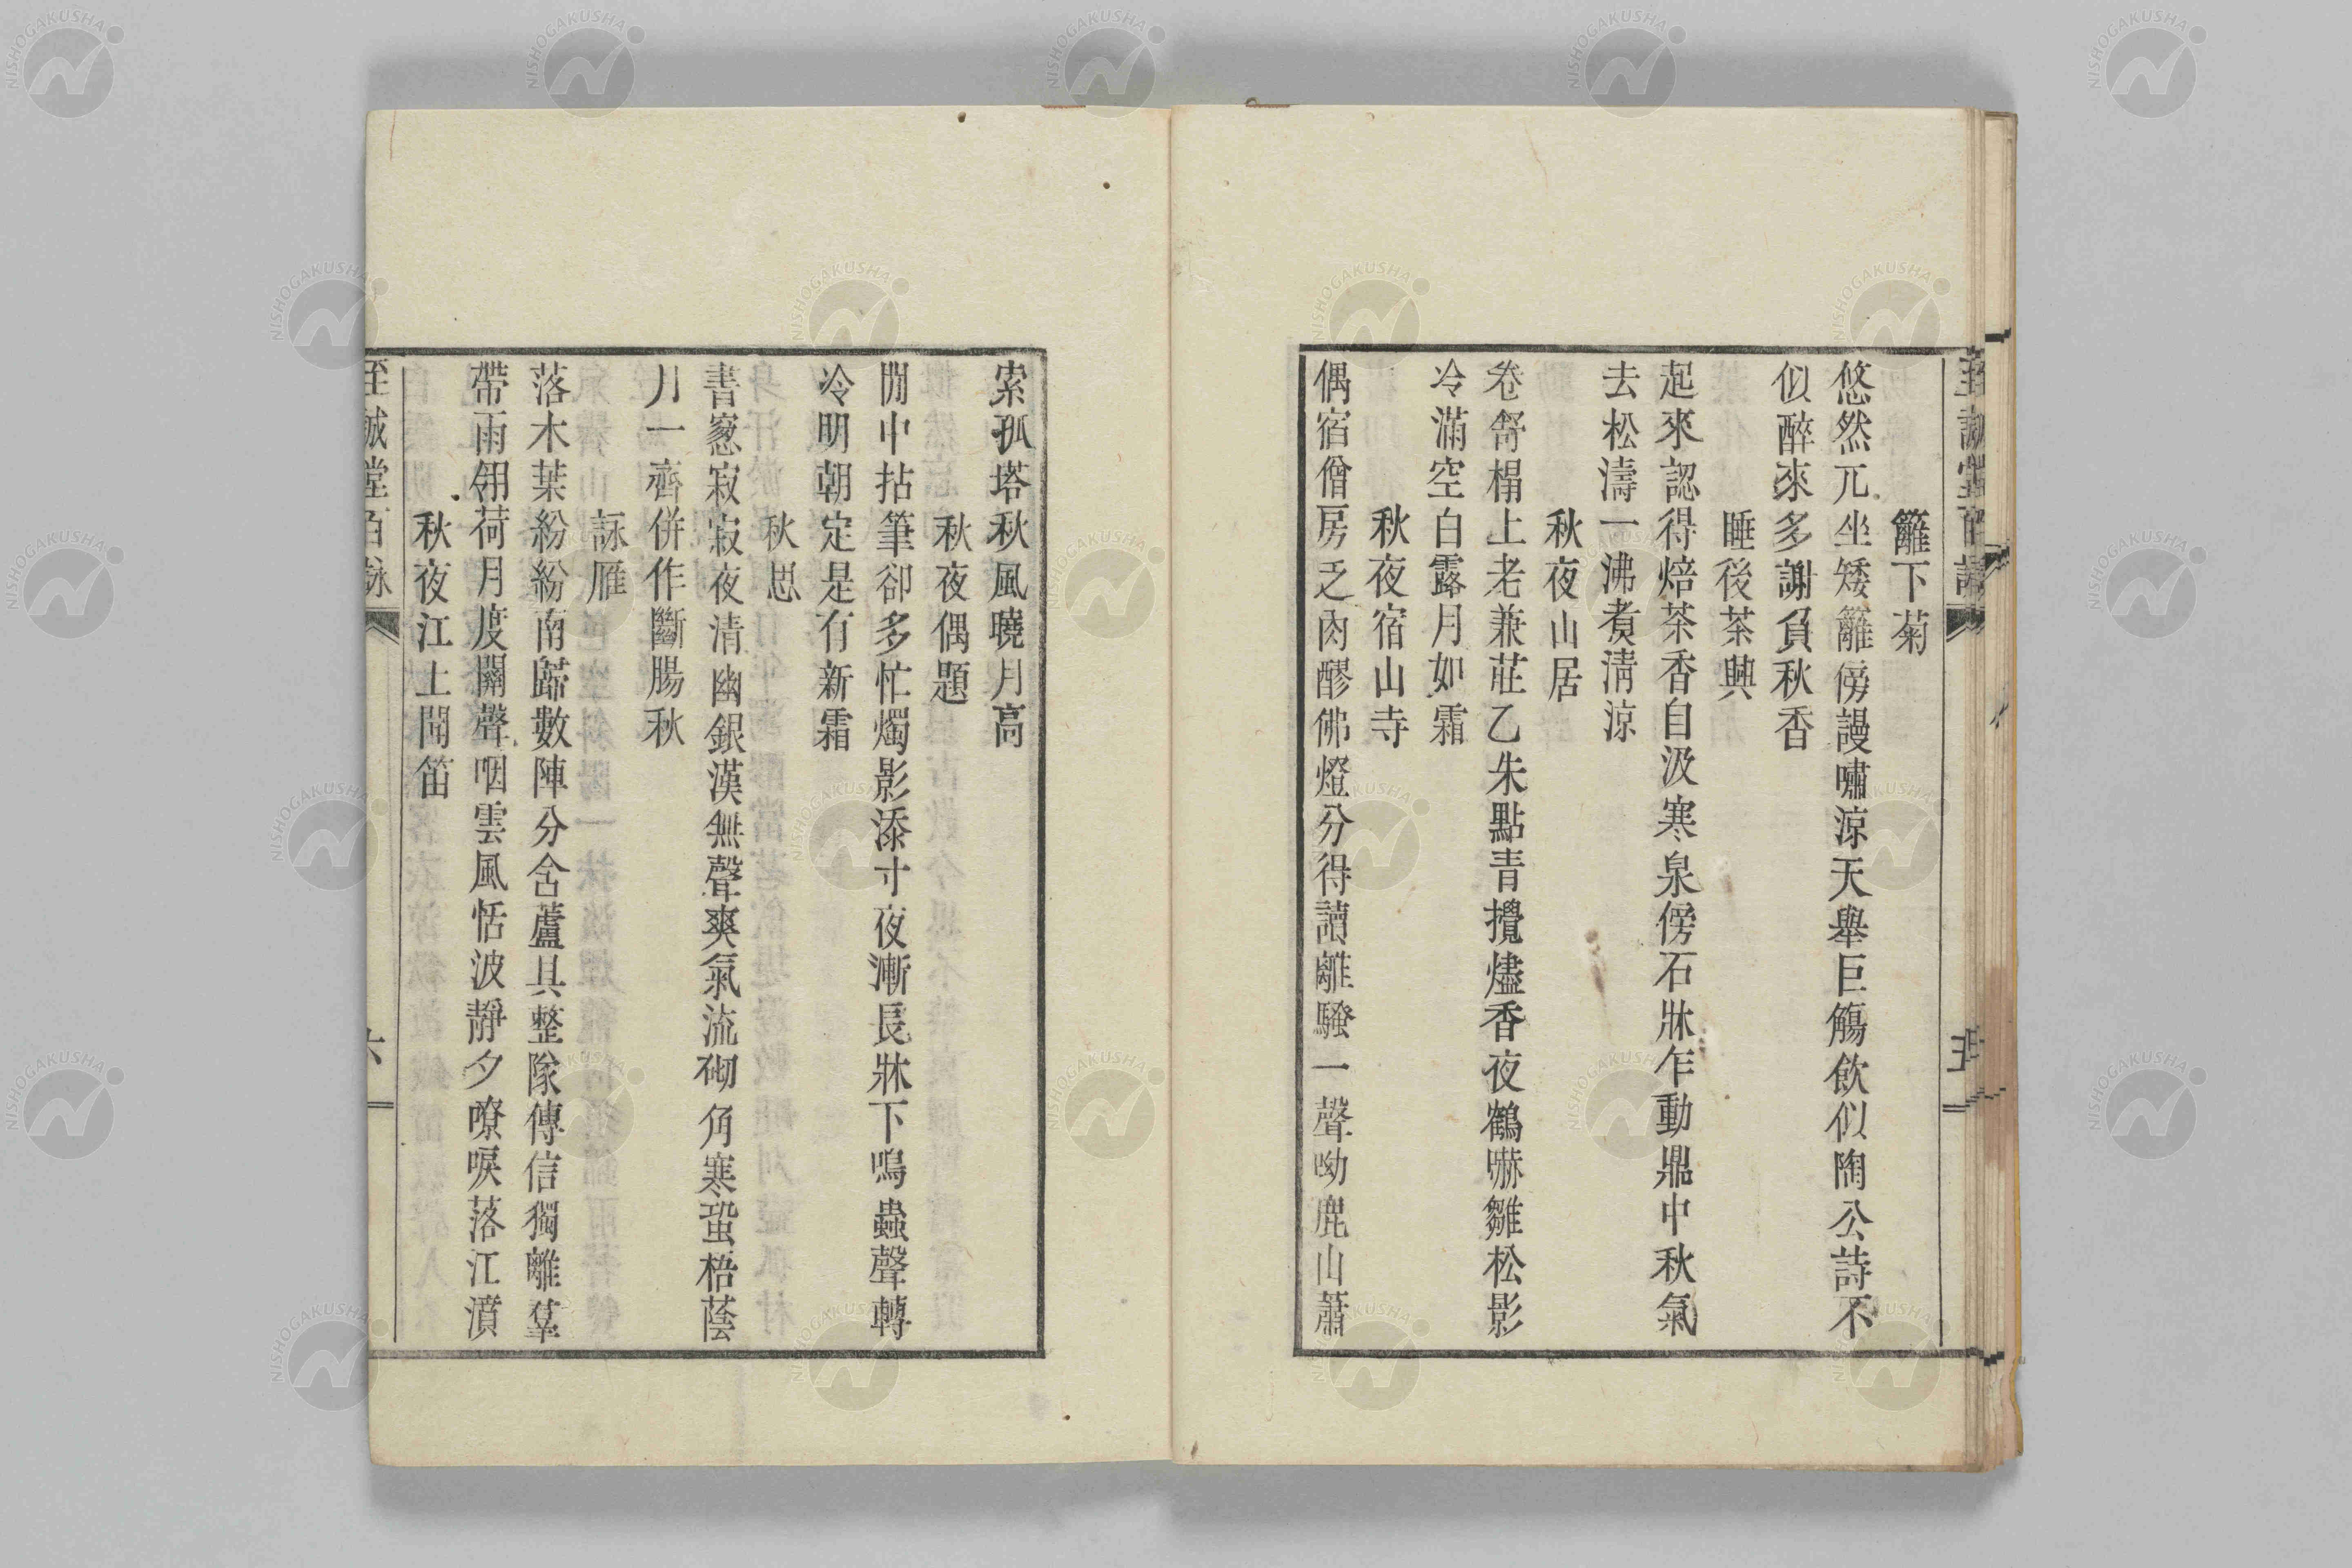 籬下菊
悠然兀坐矮籬傍謾嘯涼天舉巨觴飲似陶公詩不
似醉來多謝負秋香
睡後茶興
起來認得焙茶香自汲寒泉傍石牀乍動鼎中秋氣
去松濤一沸煮淸涼
秋夜山居
卷舒榻上老兼莊乙朱點青攪燼香夜鶴嚇雛松影
冷滿空白露月如霜
秋夜宿山寺
偶宿僧房乏肉醪佛燈分得讀離騷一聲呦鹿山蕭
索孤塔秋風曉月高
秋夜偶題
閒中拈筆卻多忙燭影添寸夜漸長牀下鳴蟲聲轉
冷明朝定是有新霜
秋思
書窻寂寂夜清幽銀漢無聲爽氣流砌角寒蛩梧蔭
月一齊併作斷腸秋
詠雁
落木葉紛紛南歸數陣分含蘆具整隊傳信獨離羣
帶雨翎荷月度關聲咽雲風恬波靜夕嘹唳落江濆
秋夜江上聞笛
至誠堂百詠
六
NISHOGAKUSHA